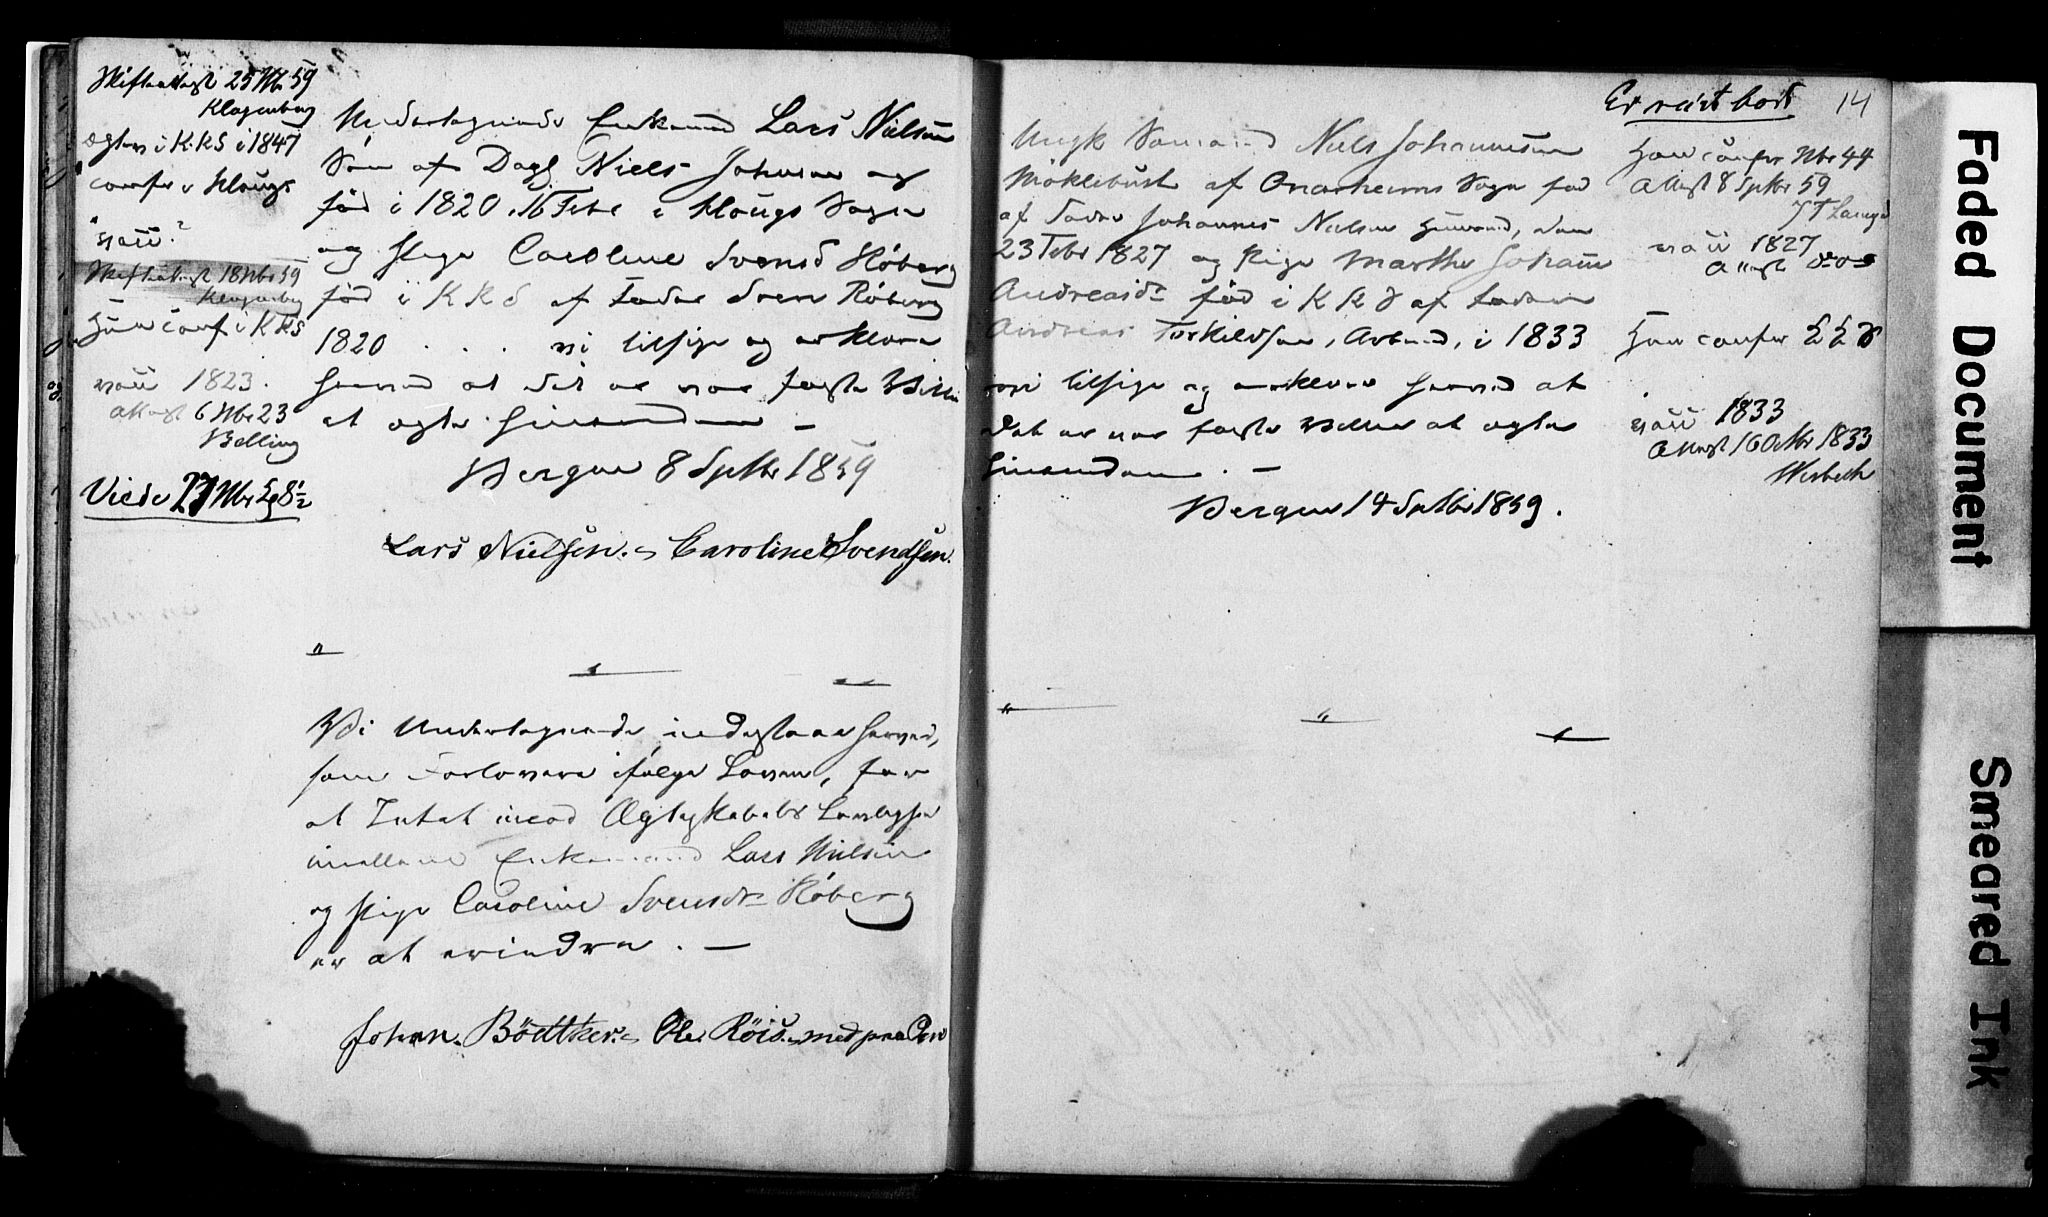 Skifteattest 25 Nbr 59
Klagenberg
Egtev i K.K.S i 1847
confr i Houg
vacc?
Skifteattest 18 Nbr 59
Klagenberg
Hun conf i K K S
vacc 1823.
attest 6 Nbr 23
Belling
Viede 27 Nbr
Undertegnede Enkemand Lars Nielsen
Søn af Dagl Niels Johnsen og
født i 1820, 16 Febr i Hougs Sogn
og Pige Caroline Svensd Høberg
født i K K S af Fader Sven Høberg
1820 . . . vi tilsige og erklære
herved at det er vor faste Villie
at ægte hinanden –
Bergen 8 Septbr 1859
Lars Nielsen. Caroline Svendsen.
Vi Undertegnede indestaae herved,
som Forlovere ifølge Loven, for
at Intet imod Ægteskabets Lovlighed
imellem Enkemand Lars Nielsen
og Pige Caroline Svensdr Høberg
er at erindre. –
Johan. Bödtker. Ole Röis. med paa Pen
Er reist bort 14
Ungk Sømand Niels Johannesen
Möklebust af Onarheims Sogn fød
af Fader Johannes Nielsen Huusmd, den
23 Febr 1827 og Pige Marthe Johanne
Andreasdr født i K K S af Fader
Andreas Torkildsen, Arbmd, i 1833
vi tilsige og erklære herved at
det er vor faste Villie at ægte
hinanden. –
Bergen 14 Septbr 1859.
Han confr Nbr 44
Attest 8 Septbr 59
vacc 1827
Attest
Hun confr
vacc 1833
Attest 16 Oktbr 1833
Wesbech
Faded Document
Smeared Ink